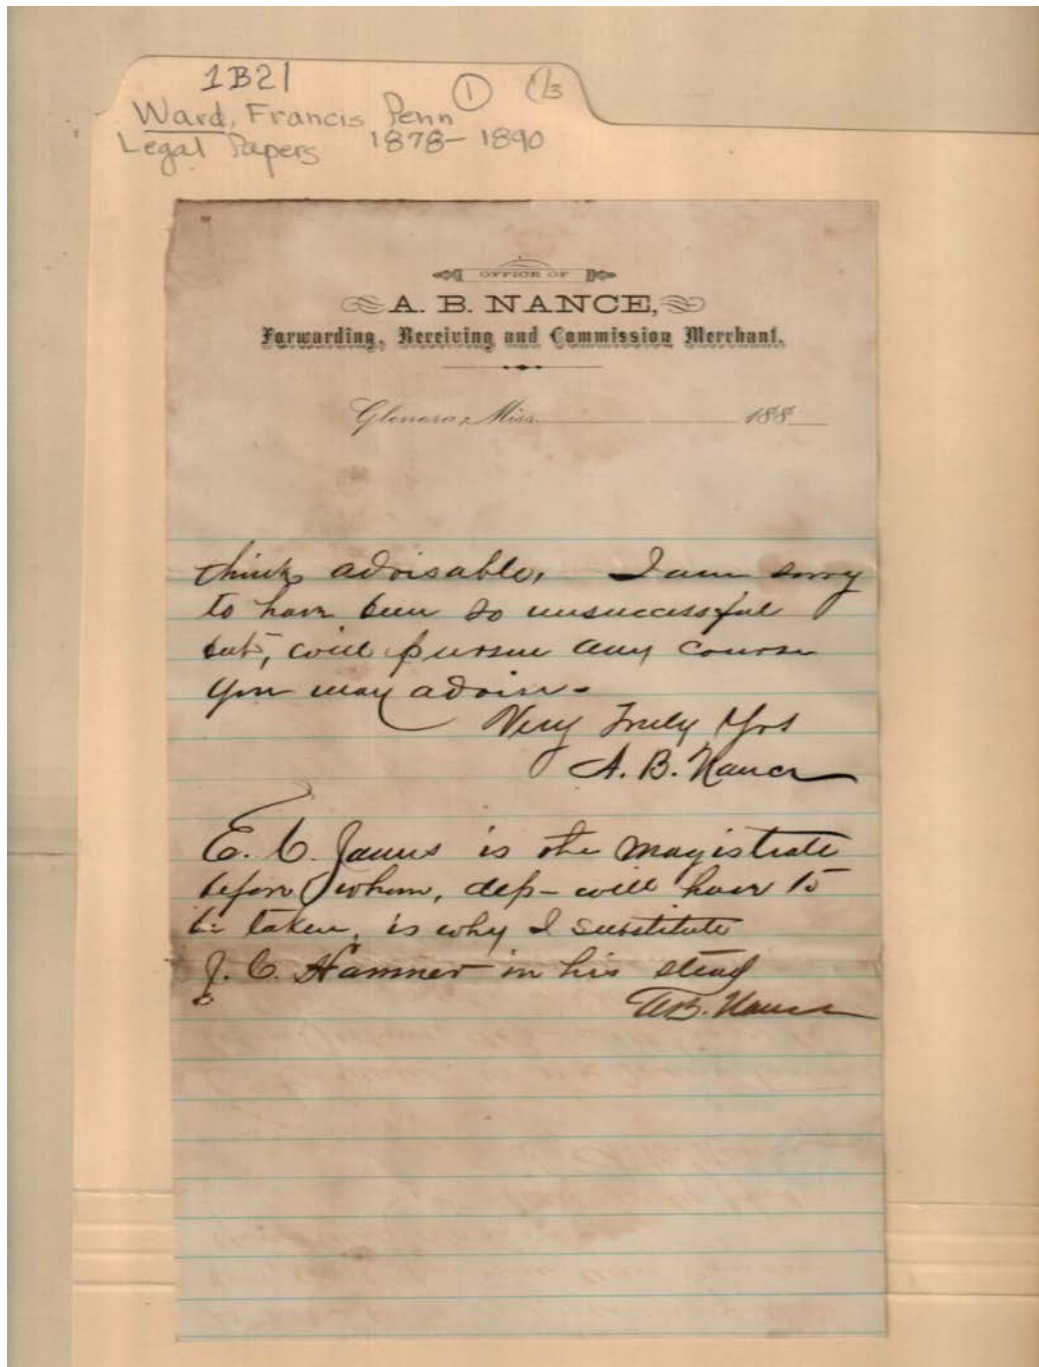 1B21
① 1/3
Ward, Francis Penn
Legal Papers 1878-1890
OFFICE OF
A. B. NANCE,
Forwarding, Receiving and Commission Merchant.
Glenora, Miss. 188
think advisable, I am sorry
to have been so unsuccessful
but, will pursue any course
you may advise-
Very Truly Yrs
A. B. Nance
E. C. James is the magistrate
before whom, dep- will have to
be taken, is why I substitute
J. C. Hamner in his stead
A.B. Nance